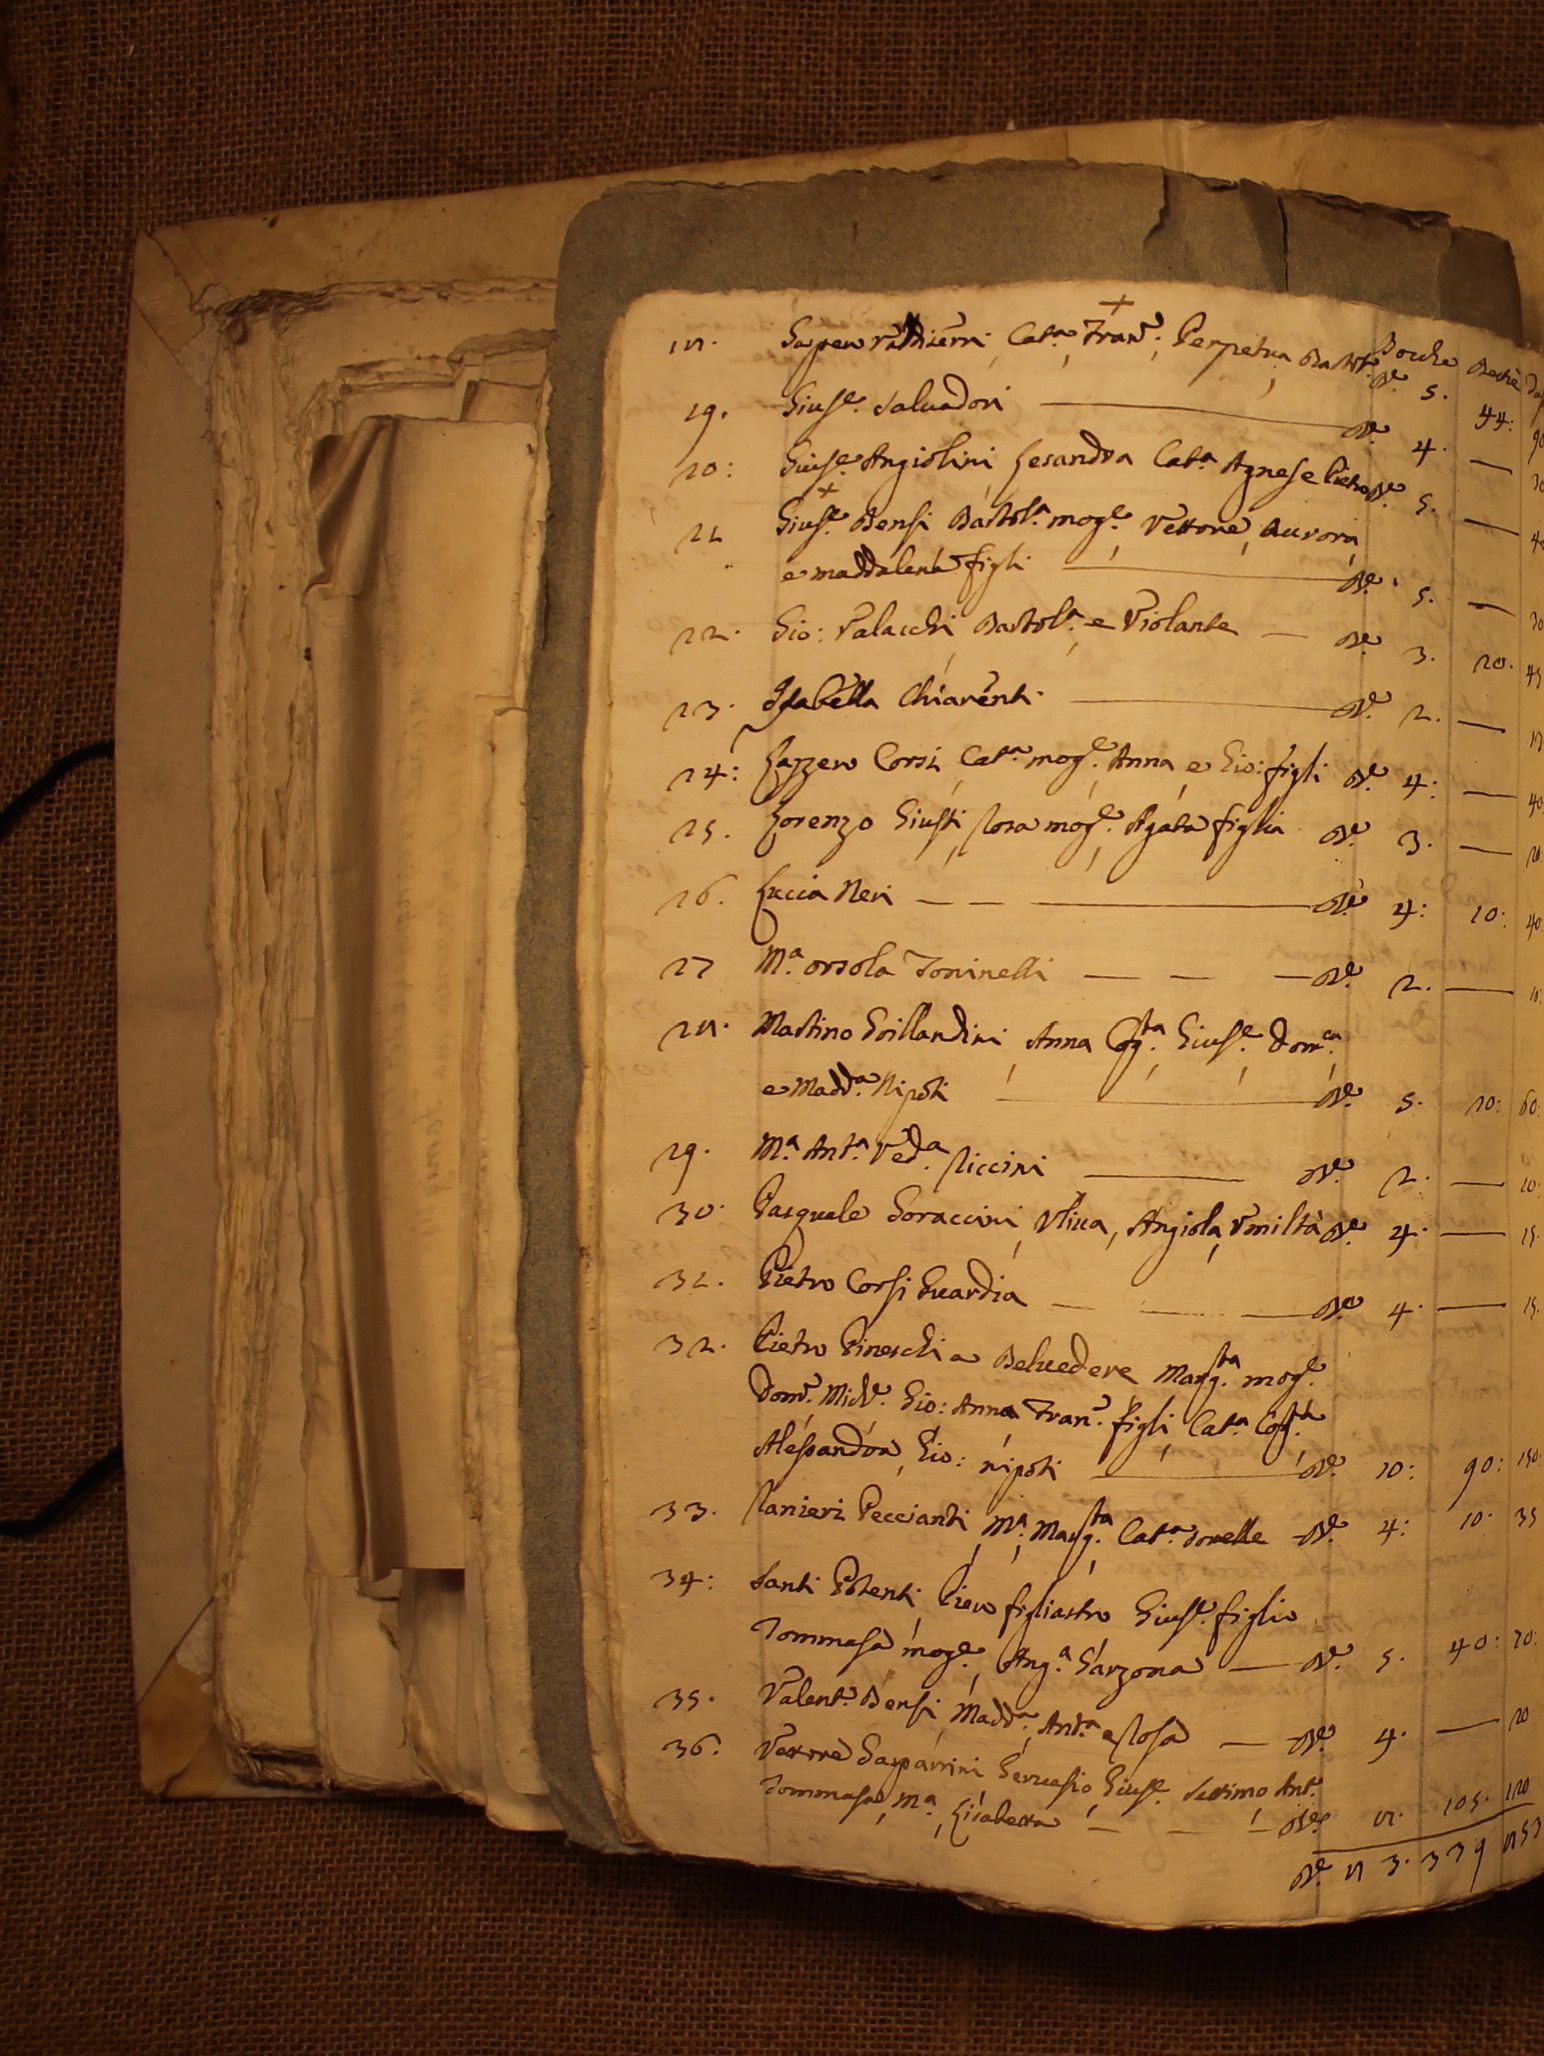 Bocche Bestie
18. Gaspero Vettierri, Cat.a Fran.a Perpetua Bart.a N.o 5. 44:
19. Gius.e Salvadori N.o 4. —
20: Gius.e Angiolini, Lesandra Cat.a Agnese Pietro N.o 5. —
21 Gius.e Bensi Bartol.a mog.e Vettorè, Aurora,
e Maddalena figli N.o 5. —
22. Gio: Valacchi, Bartol.a e Violante — N.o 3. 20.
23. Isabella Chiarenti N.o 2. —
24: Lazzero Corsi, Cat.a mog.e Anna, e Gio: figli N.o 4: —
25. Lorenzo Giusti, Rosa mog.e Agata figlia N.o 3. —
26. Lucia Neri — — N.o 4: 10: 40:
27 M.a Orsola Toninelli — — — N.o 2. — 10:
28. Martino Grillandini, Anna Cog.ta Gius.e Dom.ca
e Madd.a Nipoti N.o 5. 20: 60:
29. M.a Ant.a Ved.a Riccini N.o 2. — 10:
30. Pasquale Soraccini, Uliva, Angiola, Umiltà N.o 4. — 15.
31. Pietro Corsi Guardia — N.o 4. — 15.
32. Pietro Pineschi a Belvedere Marg.ta mog.e
Dom.o Mich.e Gio: Anna Fran.o figli, Cat.a Cog.ta
Alessandra, Gio: nipoti N.o 10: 90: 150:
33. Ranieri Peccianti, M.a Marg.ta Cat.a Sorelle N.o 4: 10. 35
34: Santi Potenti Piero figliastro Gius.e figlio
Tommasa mog.e, Ang.a Garzona — N.o 5. 40: 70:
35. Valent.o Bensi, Madd.a, Ant.a e Rosa — N.o 4. — 20
36. Vettorè Gasparrini Gervasio Gius.e Settimo Ant.o
Tommasa, M.a, Lisabetta — — — N.o 8. 105. 120
N.o 83. 339 853